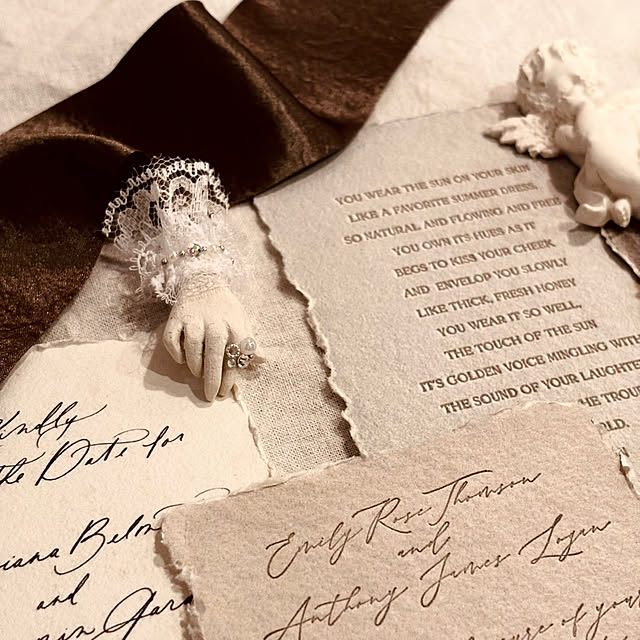 YOU WEAR THE SUN ON YOUR SKIN
LIKE A FAVORITE SUMMER DRESS
SO NATURAL AND FLOWING AND FREE
YOU OWN ITS HUES AS IT
BEGS TO KISS YOUR CHEEK
AND ENVELOP YOU SLOWLY
LIKE THICK, FRESH HONEY
YOU WEAR IT SO WELL,
THE TOUCH OF THE SUN
IT'S GOLDEN VOICE MINGLING WITH
THE SOUND OF YOUR LAUGHTER
HE TROU
OLD.
Kindly
the Date for
iana Belm
and
in Gar
Emily Rose Thomson
and
Anthony James Logen
of your